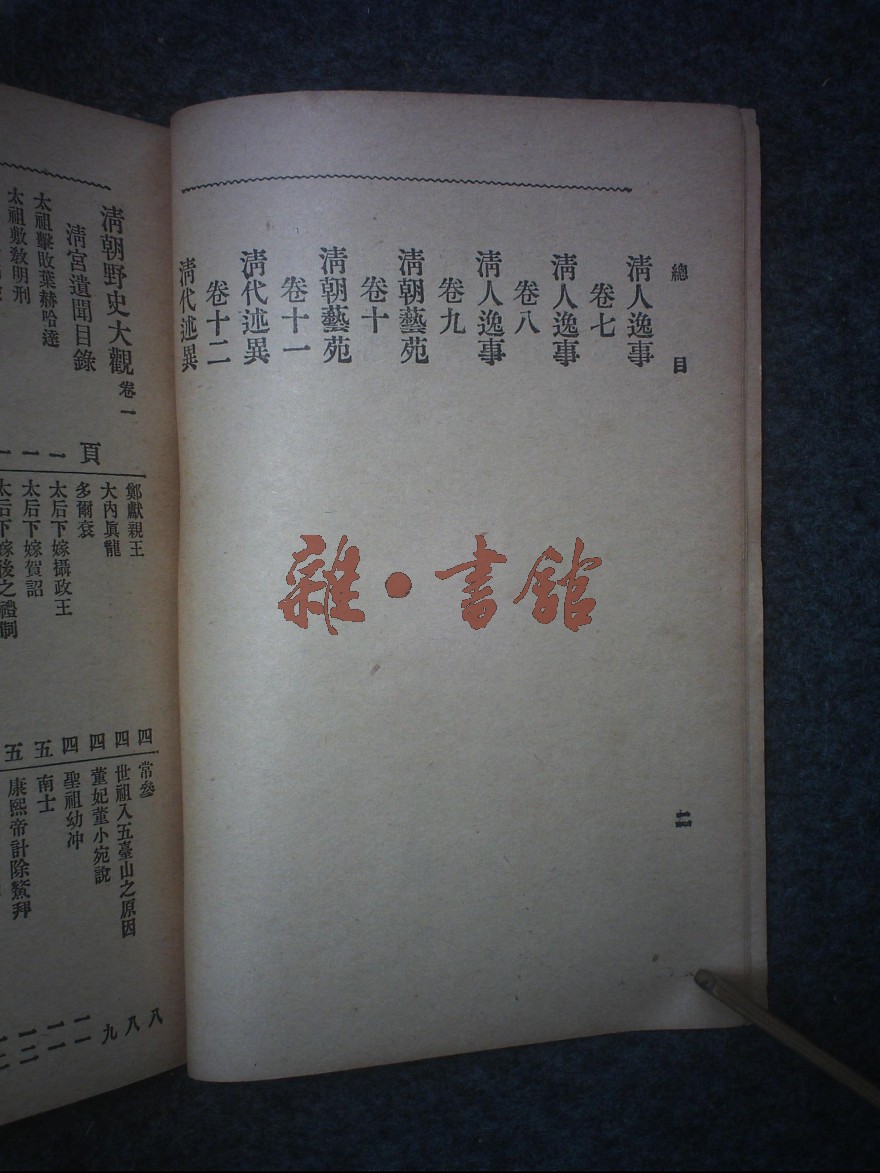 總目
清人逸事
卷七
清人逸事
卷八
清人逸事
卷九
清朝藝苑
卷十
清朝藝苑
卷十一
清代述異
卷十二
清代述異
二
雜•書館
清朝野史大觀 卷一
清宮遺聞目錄
頁
太祖擊敗葉赫哈達 一
太祖敷敎明刑 一
鄭獻親王 四
大內眞龍 四
多爾袞 四
太后下嫁攝政王 四
太后下嫁賀詔 五
太后下嫁後之禮制 五
常參 八
世祖入五臺山之原因 八
董妃董小宛說 九
聖祖幼冲 一一
南士 一一
康熙帝計除鰲拜